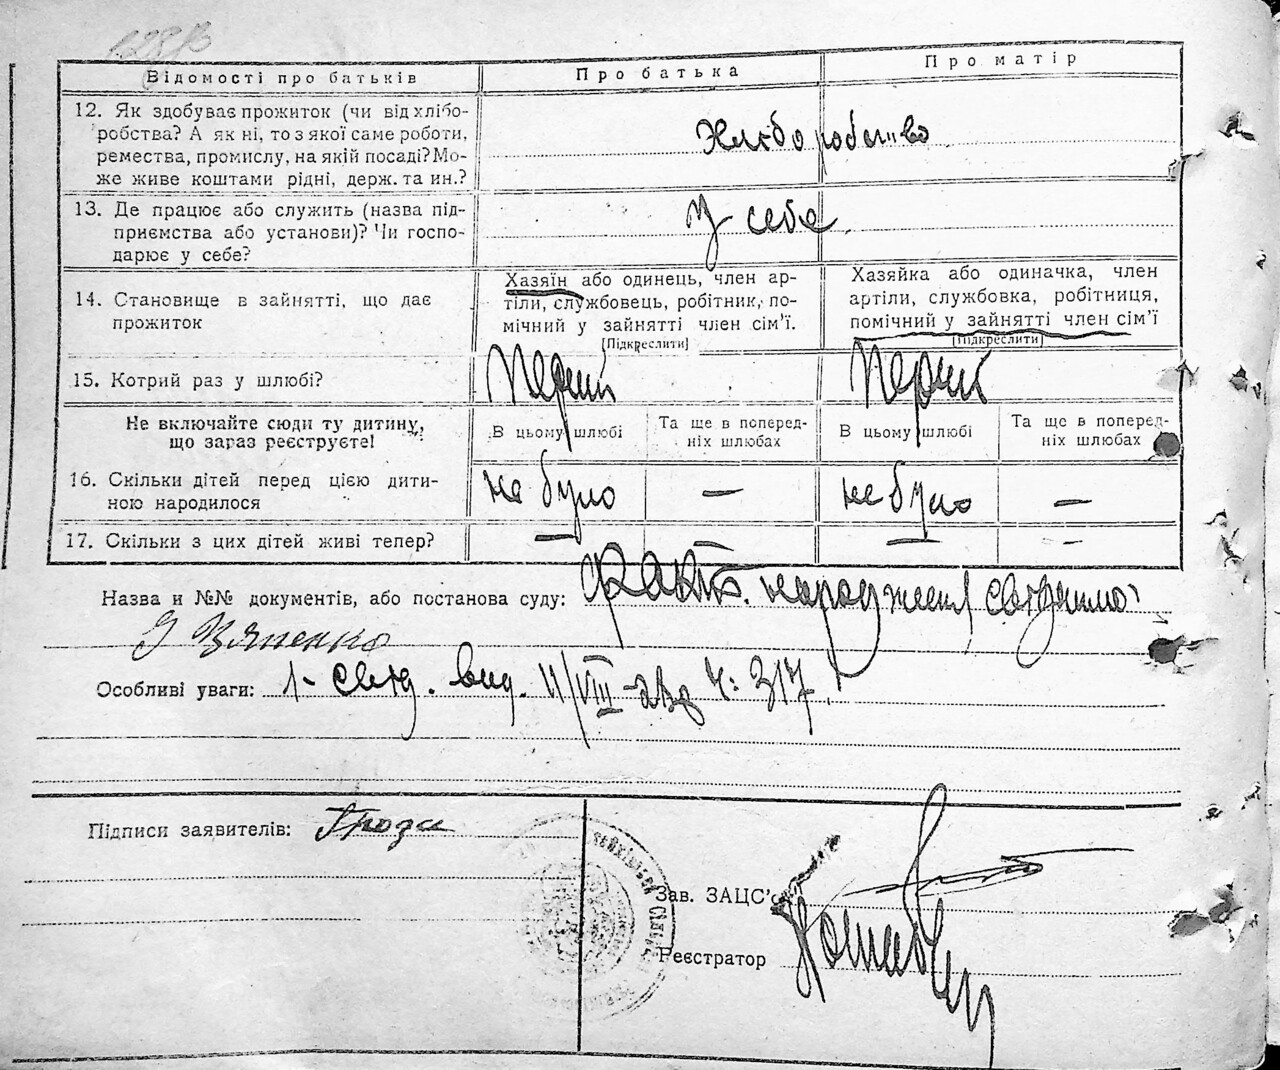 Відомості про батьків
Про батька
Про матір
12. Як здобуває прожиток (чи від хлібо-
робства? А як ні, то з якої саме роботи,
ремества, промислу, на якій посаді? Мо-
же живе коштами рідні, держ. та ин.?
Хліборобство
13. Де працює або служить (назва під-
приємства або установи)? Чи госпо-
дарює у себе?
У себе
14. Становище в зайнятті, що дає
прожиток
Хазяїн або одинець, член ар-
тіли, службовець, робітник, по-
мічний у зайнятті член сім’ї.
[Підкреслити]
Хазяйка або одиначка, член
артіли, службовка, робітниця,
помічний у зайнятті член сім’ї
[Підкреслити]
15. Котрий раз у шлюбі?
Перший
Перший
Не включайте сюди ту дитину,
що зараз реєструєте!
В цьому шлюбі
Та ще в поперед-
ніх шлюбах
В цьому шлюбі
Та ще в поперед-
ніх шлюбах
16. Скільки дітей перед цією дити-
ною народилося
не було
—
не було
—
17. Скільки з цих дітей живі тепер?
—
—
—
—
Назва и №№ документів, або постанова суду: Факт. народження
Особливі уваги: 1- свід. вид. 11/VIII ч: 317
Підписи заявителів:
Зав. ЗАЦС’
Реєстратор